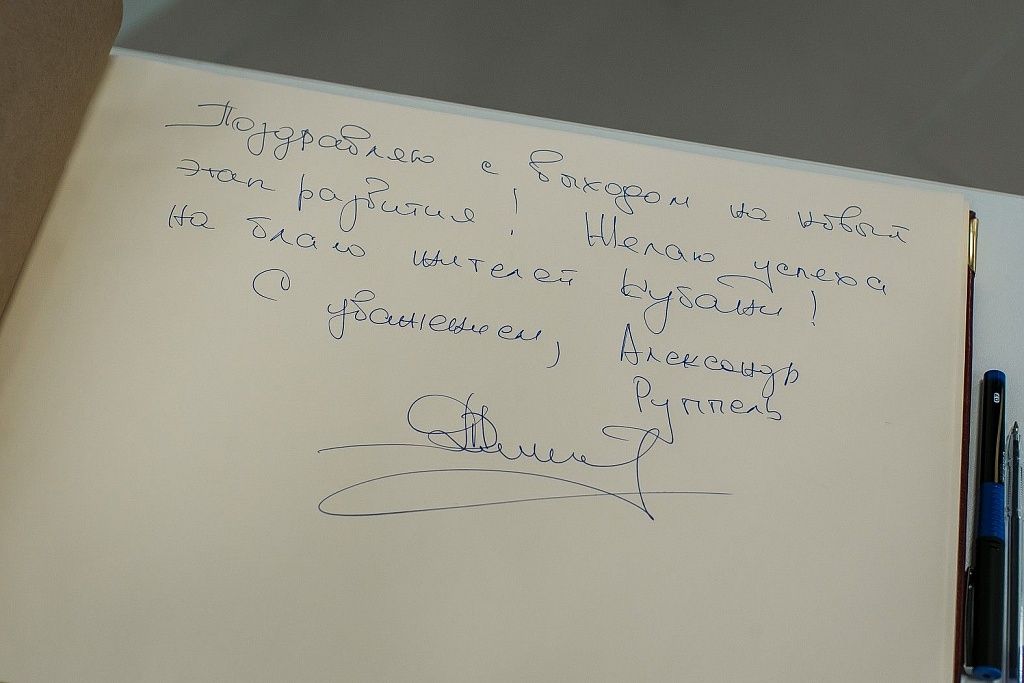 Поздравляю с выходом на новый
этап развития! Желаю успеха
на благо жителей Кубани!
С уважением, Александр
Руппель